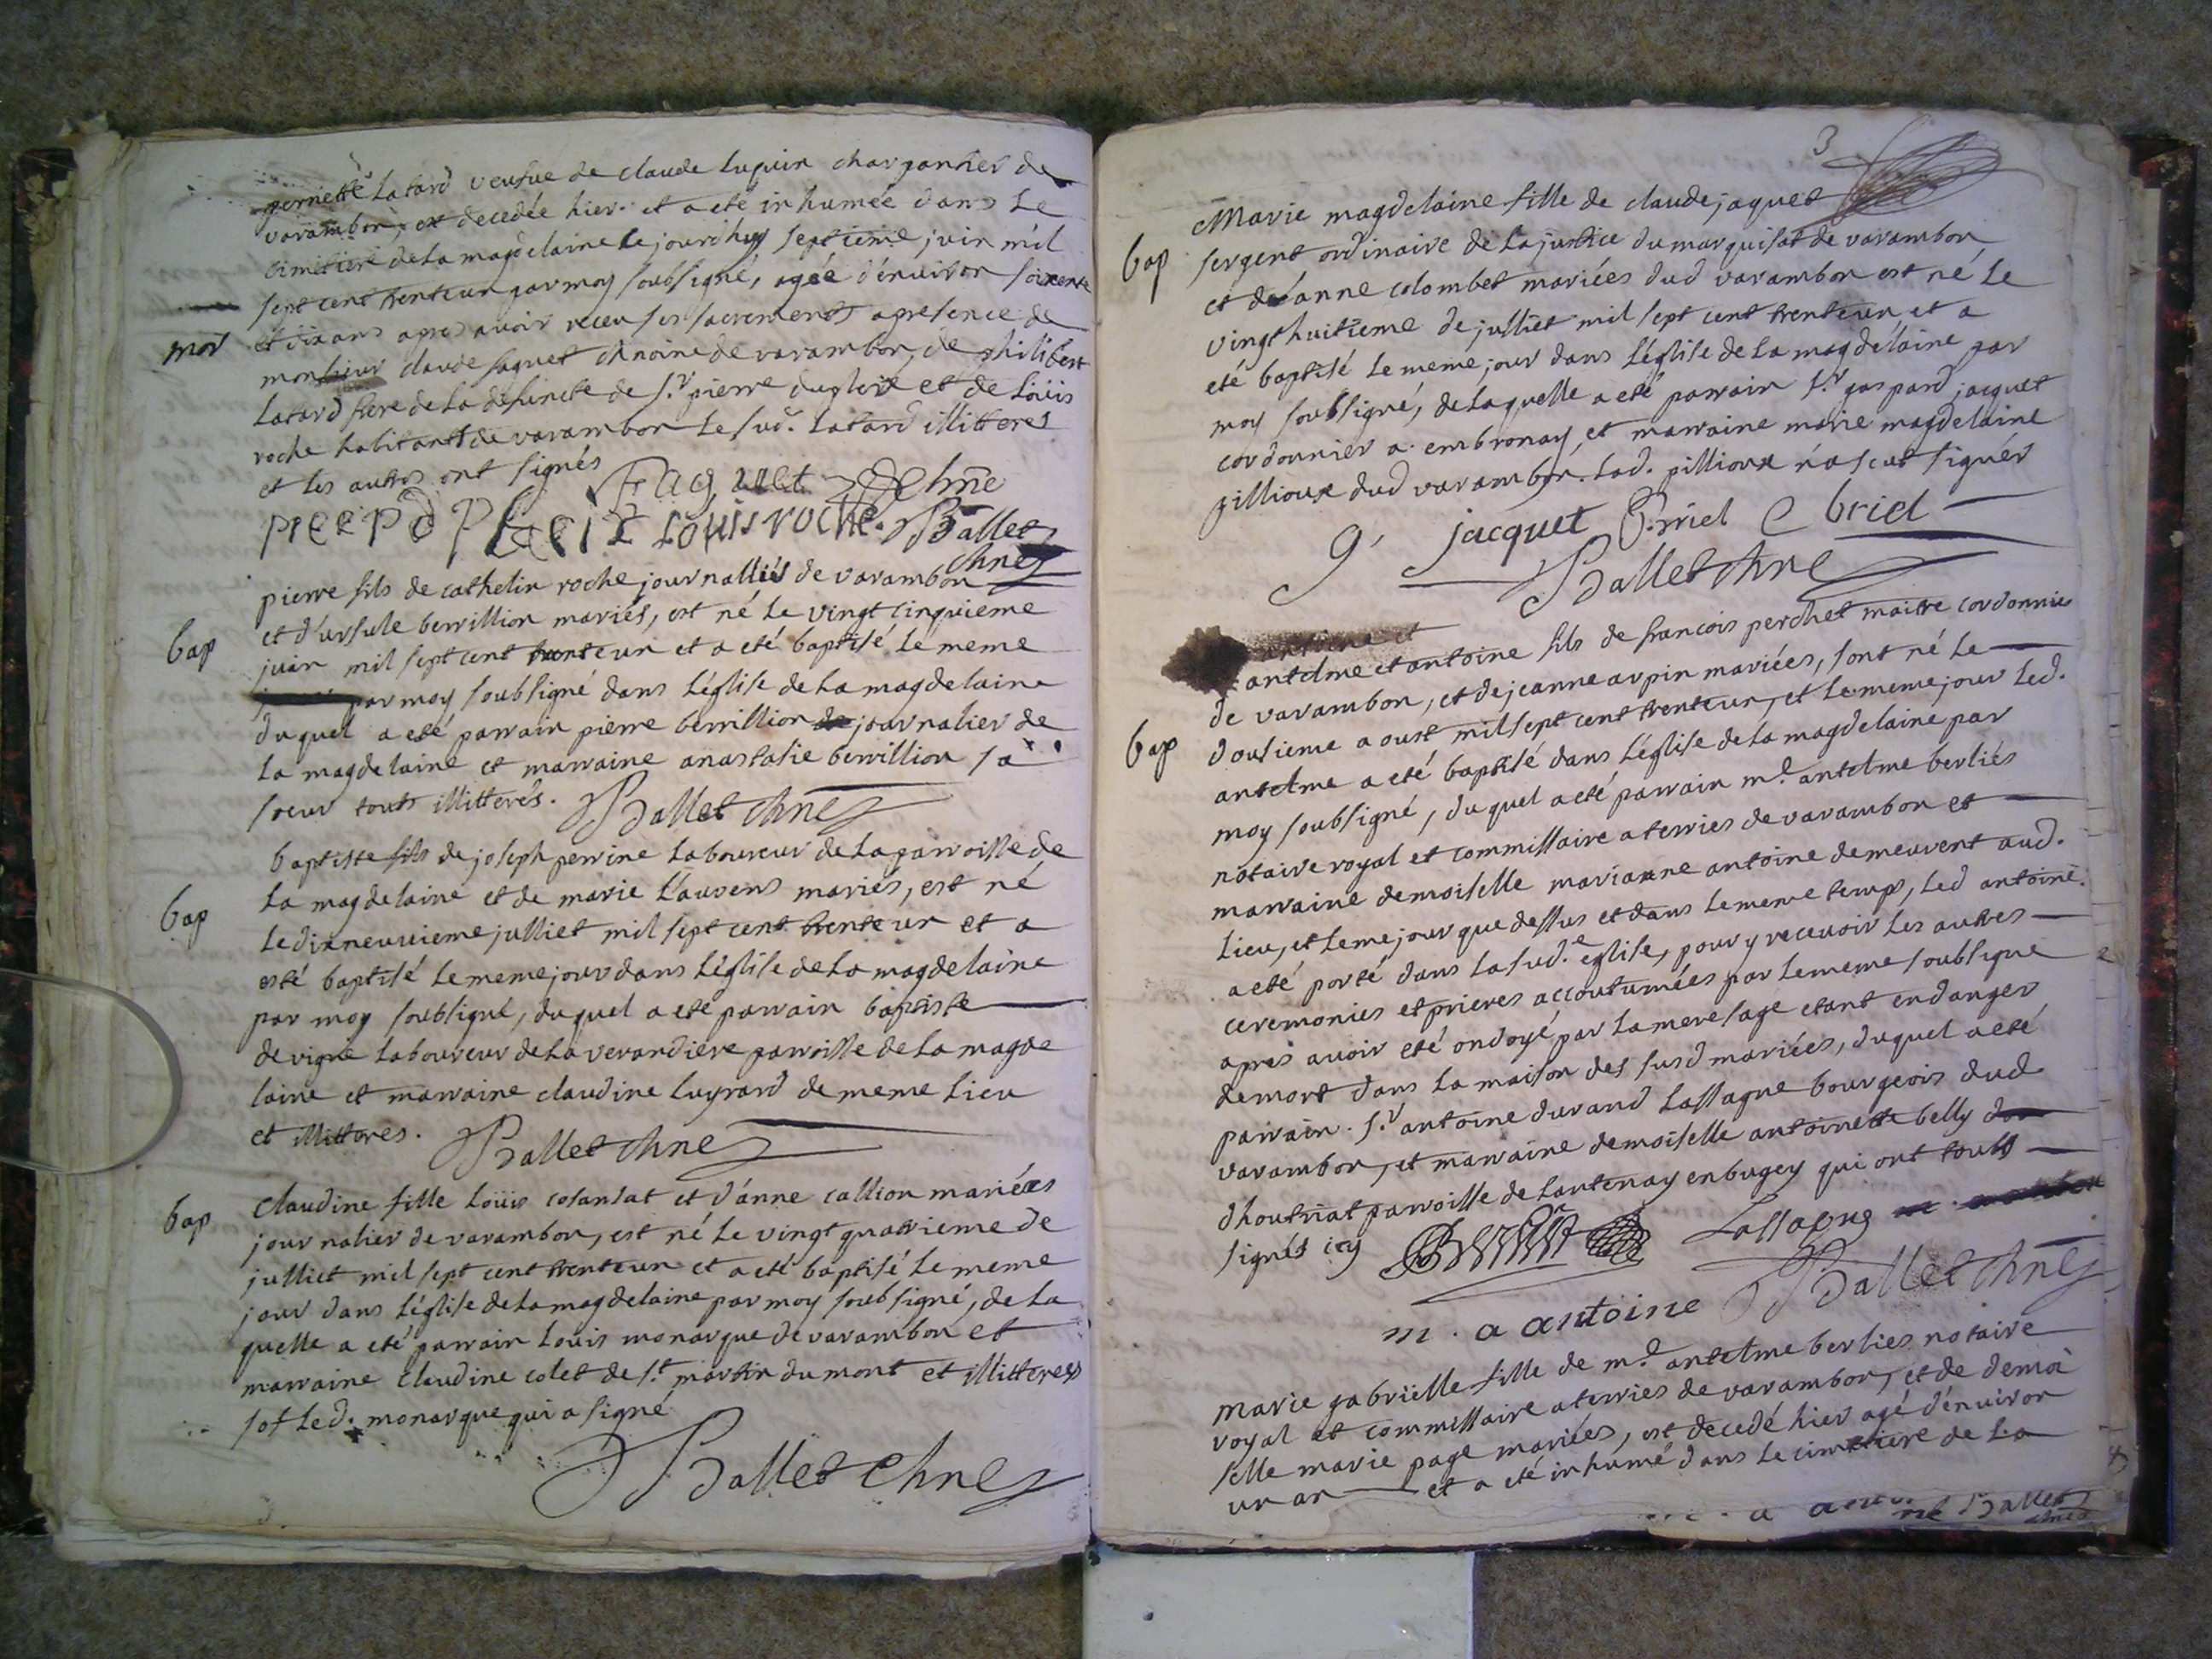 pernette Latard veufve de claude Lupin charpantier de
varambon, est decedée hier. et a eté inhumée dans Le
cimetiere de La magdelaine Le jourd'huy septieme juin mil
sept cent trenteun par moy soubsigné, agée d'enuiron soixente
mor
et dix ans apres avoir receu ses sacrements apresence de
monsieur claude faguet chnoine de varambon, de philibert
Latard frere de La defuncte de s.r pierre duploix et de Loüis
roche habitants de varambon Le sud. Latard illitteres
et Les autres ont signés
Faguet chne
Louis roche. Ballet
chne
pierre fils de cathelin roche journallier de varambon
et d'ursule berrillion mariés, est né Le vingt cinquieme
bap
juin mil sept cent trente un et a eté baptisé Le meme
par moy soubsigné dans L'église de La magdelaine
duquel a eté parrain pierre berrillion journalier de
La magdelaine et marraine anastasie berrillion sa
soeur touts illitterés. Ballet chne
baptiste fils de joseph perrine Laboureur de La parroisse de
bap
La magdelaine et de marie Laurens mariés, est né
Le dixneuuieme julliet mil sept cent trente un et a
esté baptisé Le meme jour dans L'église de La magdelaine
par moy soubsigné, duquel a eté parrain baptiste
de vigne Laboureur de La verandiere parroisse de La magde
laine et marraine claudine Luyrard de meme Lieu
et illitteres. Ballet chne
bap
Claudine fille Loüis cosansat et d'anne callion mariées
journalier de varambon, est né Le vingt quatrieme de
julliet mil sept cent trenteun et a eté baptisé Le meme
jour dans L'église de La magdelaine par moy soubsigné, de La
quelle a eté parrain Louis monarque de varambon et
marraine Claudine colet de s.t martin du mont et illitteres
sof Led. monarque qui a signé
Ballet chne
3
Marie magdelaine fille de claude jaquet
bap
sergent ordinaire de La justice du marquisat de varambon
et de anne colombet mariées dud varambon est né Le
vingt huitieme de julliet mil sept cent trenteun et a
eté baptisé Le meme jour dans L'église de La magdelaine par
moy soubsigné, de Laquelle a eté parrain s.r gaspard jacquet
cordonnier a embronay, et marraine marie magdelaine
pillioux dud varambon. Lad. pillioux n'a scut signér
g, jacquet briel
Ballet chne
antoine et
antelme et antoine fils de francois perchet maitre cordonnier
de varambon, et de jeanne arpin mariées, sont né Le
bap
dousieme aoust mil sept cent trenteun, et Le meme jour Led.
antelme a eté baptisé dans L'église de La magdelaine par
moy soubsigné, duquel a eté parrain m.e antelme berliés
notaire royal et commissaire a terries de varambon et
marraine demoiselle marianne antoine demeurent aud.
Lieu, et Lemejour que dessus et dans Le meme temps, Led antoine
a eté porté dans La sud.e eglise, pour y recevoir Les autres
ceremonies et prieres accoutumées par Le meme soubsigne
apres avoir eté ondoyé par La mere sage etant en danger
de mort dans La maison des susd mariées, duquel a eté
parrain. s.r antoine durand Lassagne bourgeois dud
varambon, et marraine demoiselle antoinette belly
d'houtriat parroisse de Lantenay en bugey qui ont touts
signés icy Lassagne
m. a antoine Ballet chne
marie gabrielle fille de m.e antelme berlies notaire
royal et commissaire a terries de varambon, et de demoi
selle marie page mariées, est decedé hier agé d'enuiron
un an et a eté inhumé dans Le cimetiere de La
Ballet
chne